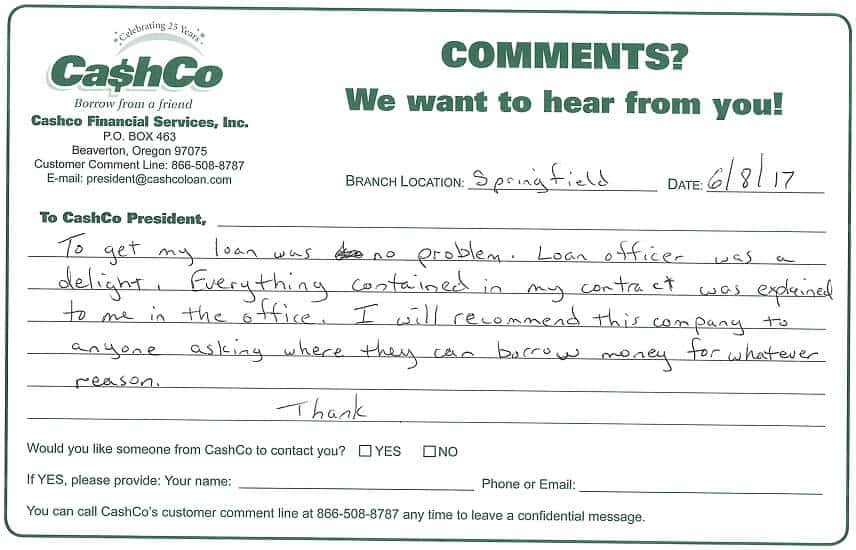 Celebrating 25 Years
Ca$hCo
Borrow from a friend
Cashco Financial Services, Inc.
P.O. BOX 463
Beaverton, Oregon 97075
Customer Comment Line: 866-508-8787
E-mail: president@cashcoloan.com
COMMENTS?
We want to hear from you!
BRANCH LOCATION: Springfield DATE: 6/8/17
To CashCo President,
To get my loan was no problem. Loan officer was a
delight. Everything contained in my contract was explained
to me in the office. I will recommend this company to
anyone asking where they can borrow money for whatever
reason.
Thank
Would you like someone from CashCo to contact you? ☐ YES ☐ NO
If YES, please provide: Your name: Phone or Email:
You can call CashCo's customer comment line at 866-508-8787 any time to leave a confidential message.